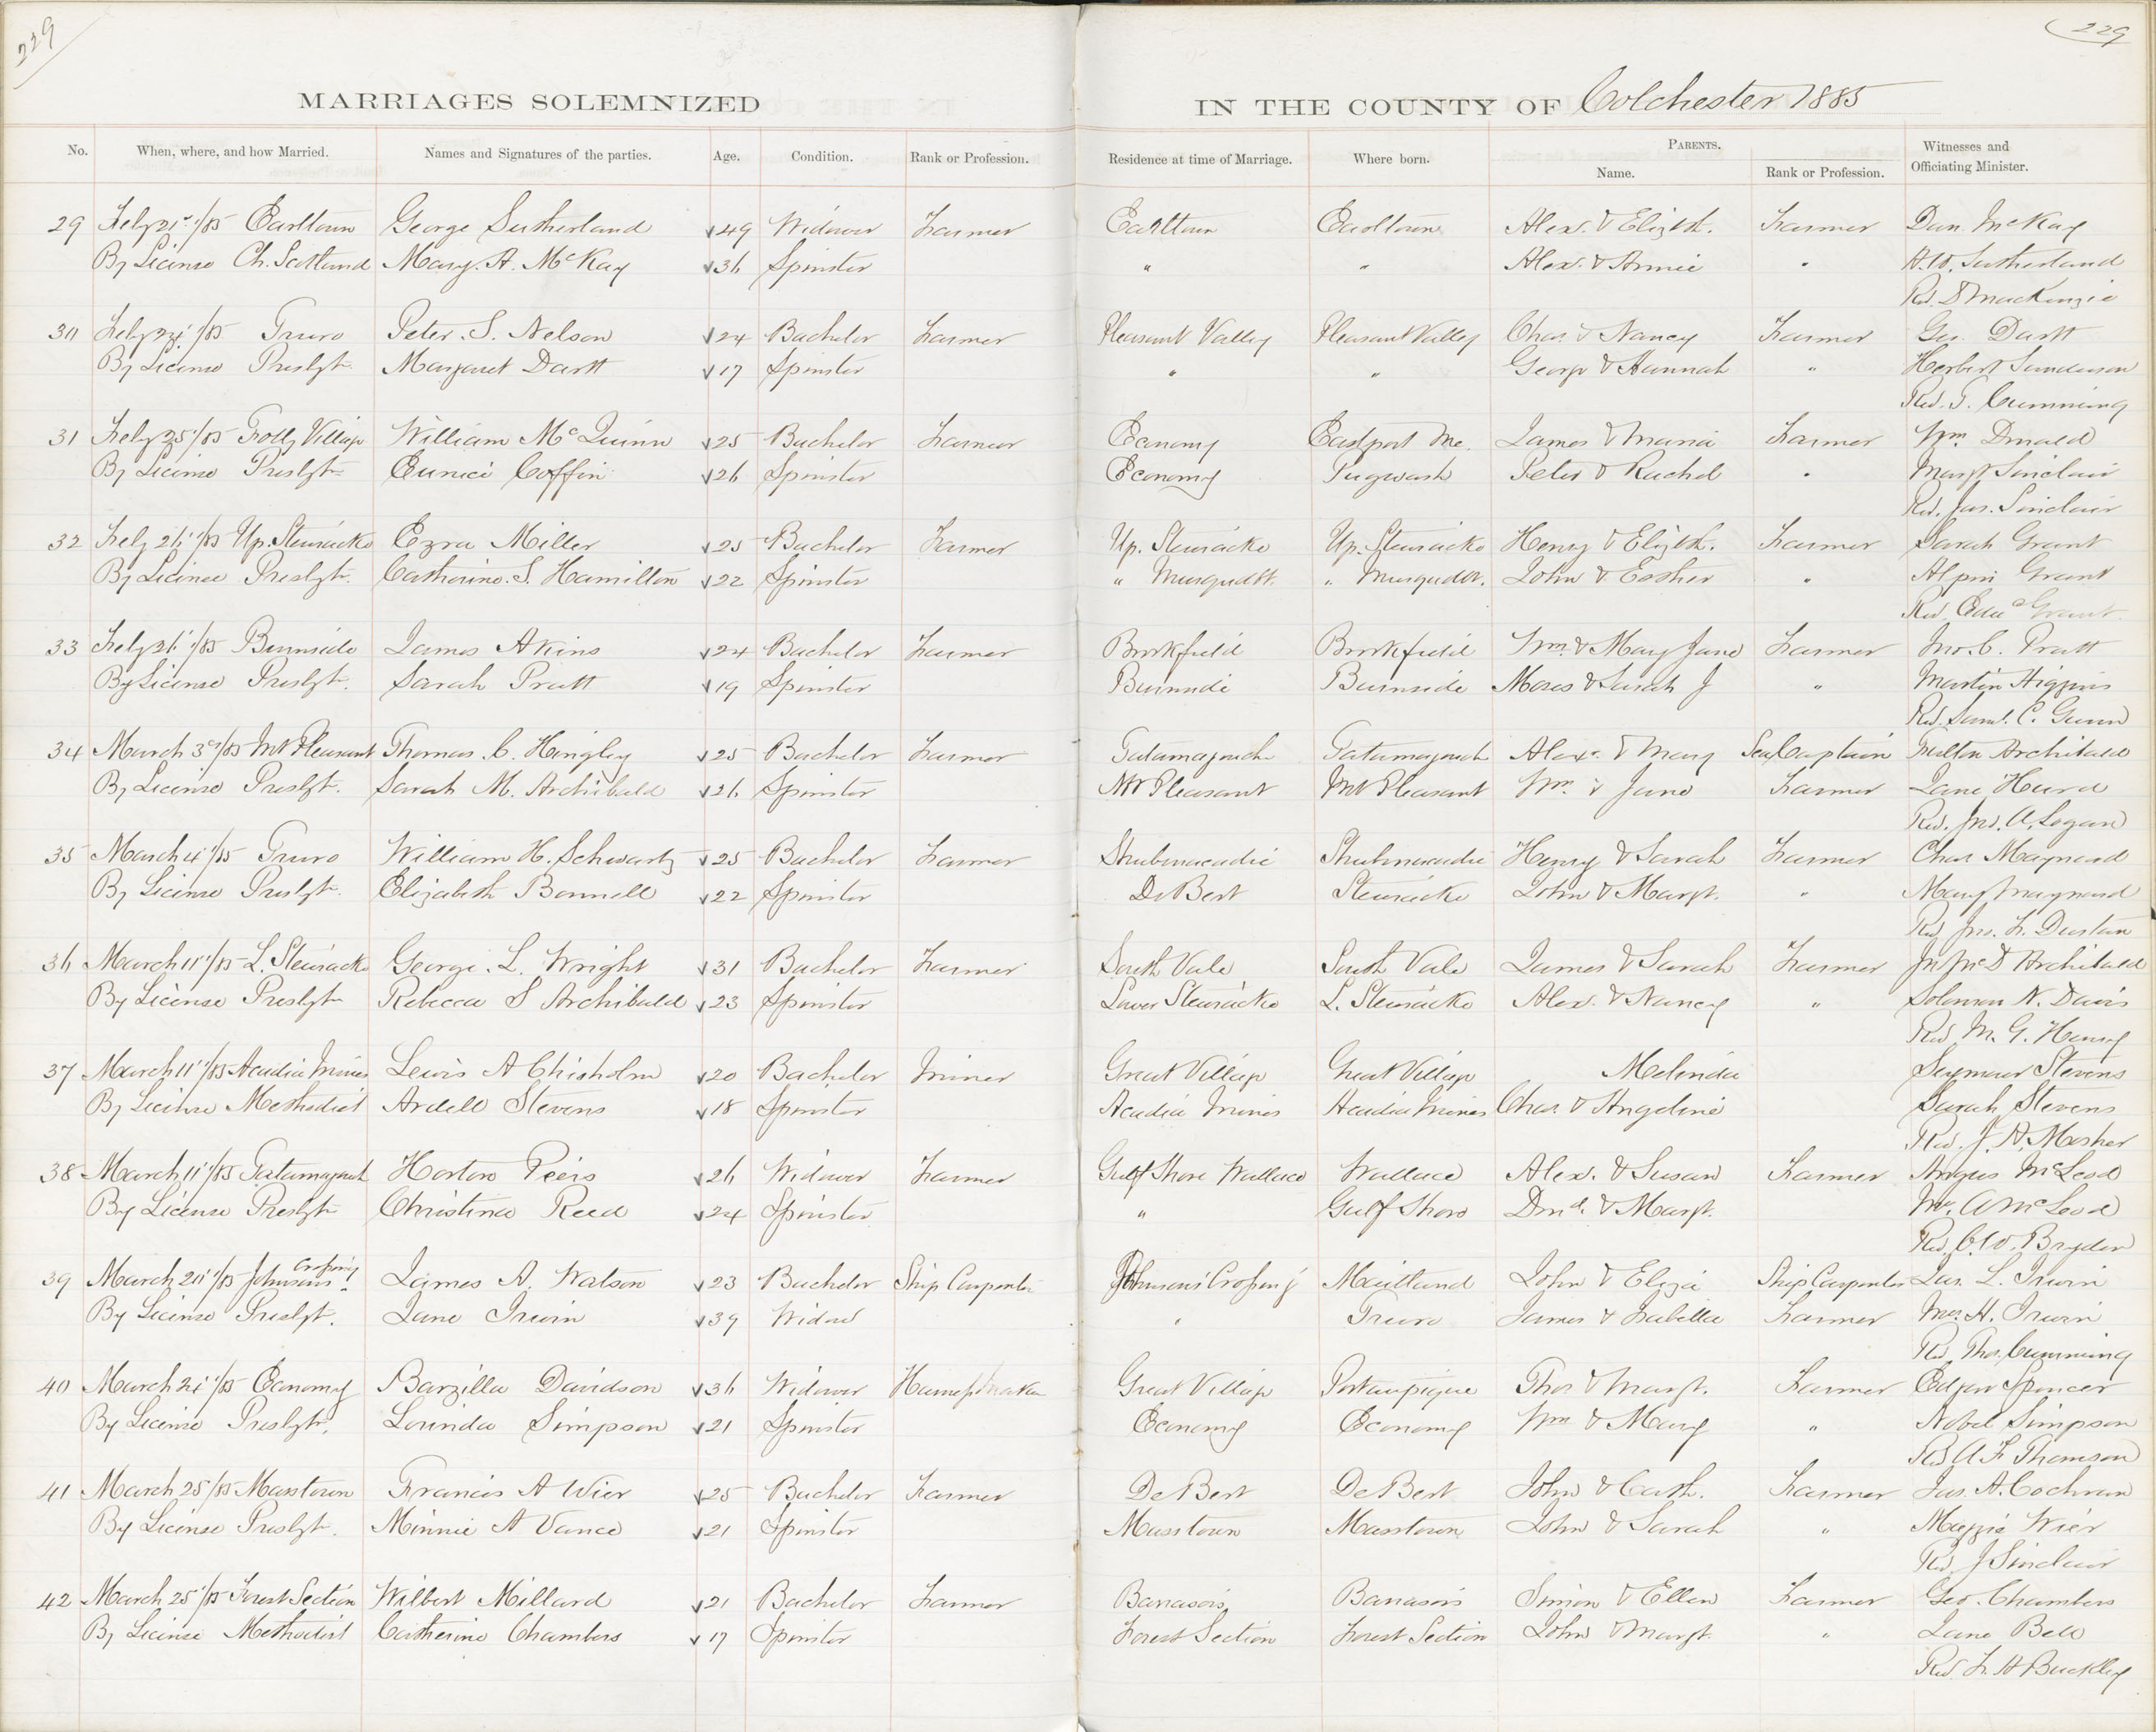 229
229
MARRIAGES SOLEMNIZED IN THE COUNTY OF Colchester 1885
No. When, where, and how Married. Names and Signatures of the parties. Age. Condition. Rank or Profession. Residence at time of Marriage. Where born. PARENTS. Name. Rank or Profession. Witnesses and Officiating Minister.
29 Feby 21st/85 Earltown George Sutherland 49 Widower Farmer Earltown Earltown Alex. & Elizth. Farmer Dan McKay
By License Ch. Scotland Mary. A. McKay 36 Spinster " " Alex. & Annie " Sutherland
Rev. D MacKenzie
30 Feby /85 Truro Peter. S. Nelson 24 Bachelor Farmer Pleasant Valley Pleasant Valley Chas & Nancy Farmer Geo. Dartt
By License Presbyt. Margaret Dartt 17 Spinster " " George & Hannah " Herbert
Rev. T. Cumming
31 Feby 25/85 Folly Village William McQuinn 25 Bachelor Farmer Economy Eastport Me. James & Maria Farmer Wm Donald
By License Presbyt Eunice Coffin 26 Spinster Economy Pugwash Peter & Rachel " Margt Sinclair
Rev. Jas. Sinclair
32 Feby 26/85 Up. Stewiacke Ezra Miller 25 Bachelor Farmer Up. Stewiacke Up. Stewiacke Henry & Elizth. Farmer Sarah Grant
By License Presbyt. Catherine. S. Hamilton 22 Spinster " Musquodt. " Musquodt. John & Esther " Alpin Grant
Rev. Grant
33 Feby 26/85 Burnside James Akins 24 Bachelor Farmer Brookfield Brookfield Wm & Mary Jane Farmer Jno. C. Pratt
By License Presbyt. Sarah Pratt 19 Spinster Burnside Burnside Moses & Sarah J " Martin Higgins
Rev. Saml. C. Gunn
34 March 3d/85 Mt Pleasant Thomas. C. Hingley 25 Bachelor Farmer Tatamagouch Tatamagouch Alexr. & Mary Sea Captain Fulton Archibald
By License Presbyt. Sarah M. Archibald 26 Spinster Mt Pleasant Mt Pleasant Wm. & Jane Farmer Jane Hurd
Rev. Jno. A. Logan
35 March 4/85 Truro William H. Schwartz 25 Bachelor Farmer Shubenacadie Shubenacadie Henry & Sarah Farmer Chas Maynard
By License Presbyt. Elizabeth Bonnell 22 Spinster De Bert Stewiacke John & Margt. " Mary Maynard
Rev Jno. F. Dustan
36 March 11/85 L. Stewiacke George. L. Wright 31 Bachelor Farmer South Vale South Vale James & Sarah Farmer Archibald
By License Presbyt Rebecca S Archibald 23 Spinster Lower Stewiacke L. Stewiacke Alex. & Nancy " Solomon N. Davis
Rev M. G. Henry
37 March 11/85 Acadia Mines Lewis A Chisholm 20 Bachelor Miner Great Village Great Village Melinda Seymour Stevens
By License Methodist Ardell Stevens 18 Spinster Acadia Mines Acadia Mines Chas. & Angeline Sarah Stevens
Rev. J. A. Mosher
38 March 11/85 Tatamagouch Horton Peers 26 Widower Farmer Gulf Shore Wallace Wallace Alex. & Susan Farmer Angus McLeod
By License Presbyt Christina Reed 24 Spinster " Gulf Shore Dond. & Margt. McLeod
Rev. C. W. Bryden
39 March /85 Johnsons Crossing James A. Watson 23 Bachelor Ship Carpenter Johnsons Crossing Maitland John & Eliza Ship Carpenter Jas. L. Irwin
By License Presbyt. Jane Irwin 39 Widow " Truro James & Isabella Farmer Mrs. H. Irwin
Rev. Thos. Cumming
40 March 24/85 Economy Barzilla Davidson 36 Widower Harness Maker Great Village Portaupique Thos & Margt. Farmer Edgar Spencer
By License Presbyt. Lorinda Simpson 21 Spinster Economy Economy Wm & Mary " Nobel Simpson
Rev A F Thomson
41 March 25/85 Masstown Francis A Wier 25 Bachelor Farmer De Bert De Bert John & Cath. Farmer Jas. A. Cochran
By License Presbyt. Minnie A Vance 21 Spinster Masstown Masstown John & Sarah " Maggie Wier
Rev J Sinclair
42 March 25/85 Forest Section Wilbert Millard 21 Bachelor Farmer Simon & Ellen Farmer Geo. Chambers
By License Methodist Catherine Chambers 17 Spinster Forest Section Forest Section John & Margt. " Jane Bell
Rev. F. H Buckley